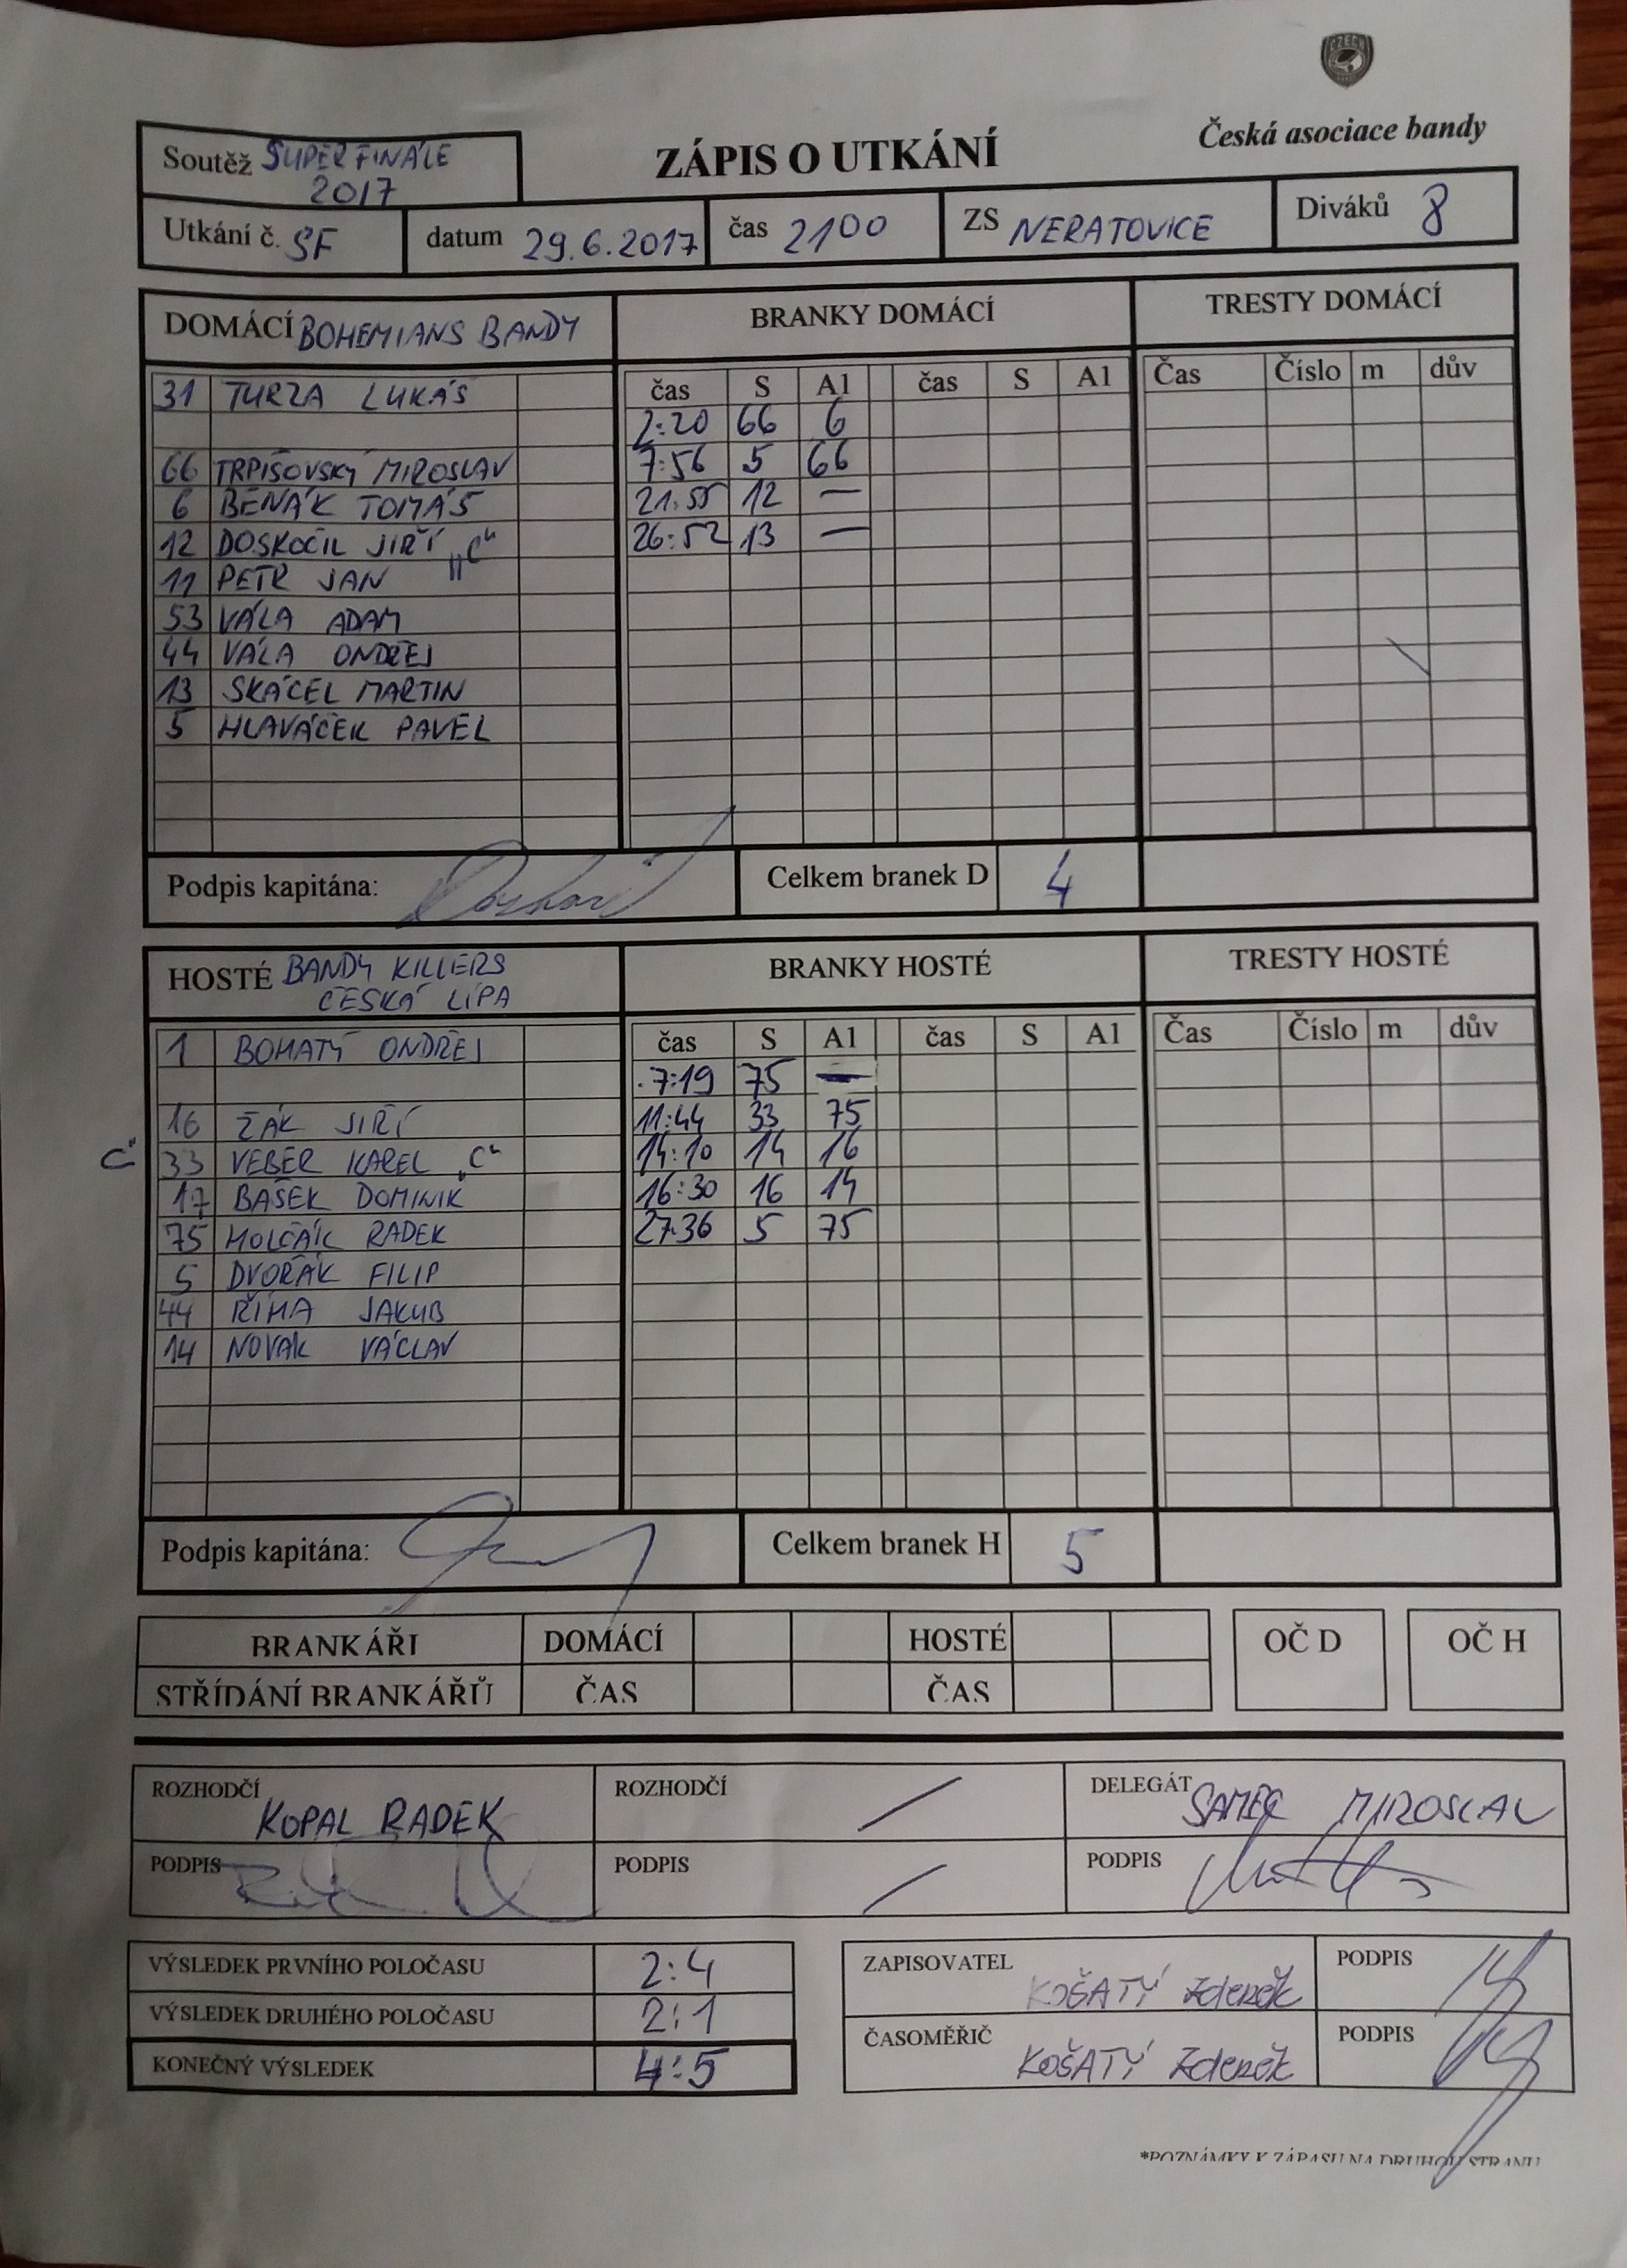 CZECH
Česká asociace bandy
ZÁPIS O UTKÁNÍ
Soutěž SUPERFINÁLE
2017
Utkání č. SF datum 29.6.2017 čas 2100 ZS NERATOVICE Diváků 8
DOMÁCÍ BOHEMIANS BANDY BRANKY DOMÁCÍ TRESTY DOMÁCÍ
31 TURZA LUKÁŠ čas S A1 čas S A1 Čas Číslo m dův
2:20 66 6
66 TRPIŠOVSKÝ MIROSLAV 7:56 5 66
6 BENÁK TOMÁŠ 21:55 12 —
12 DOSKOČIL JIŘÍ „C“ 26:52 13 —
11 PETR JAN
53 VÁLA ADAM
44 VÁLA ONDŘEJ
13 SKÁCEL MARTIN
5 HLAVÁČEK PAVEL
Podpis kapitána: Celkem branek D 4
HOSTÉ BANDY KILLERS
ČESKÁ LÍPA
BRANKY HOSTÉ TRESTY HOSTÉ
1 BOHATÝ ONDŘEJ čas S A1 čas S A1 Čas Číslo m dův
7:19 75 —
16 ŽÁK JIŘÍ 11:44 33 75
C“ 33 VEBER KAREL „C“ 14:10 14 16
17 BAŠEK DOMINIK 16:30 16 14
75 MOLČÁK RADEK 27:36 5 75
5 DVOŘÁK FILIP
44 ŘÍHA JAKUB
14 NOVÁK VÁCLAV
Podpis kapitána: Celkem branek H 5
BRANKÁŘI DOMÁCÍ HOSTÉ OČ D OČ H
STŘÍDÁNÍ BRANKÁŘŮ ČAS ČAS
ROZHODČÍ KOPAL RADEK ROZHODČÍ / DELEGÁT SAMEC MIROSLAV
PODPIS PODPIS / PODPIS
VÝSLEDEK PRVNÍHO POLOČASU 2:4 ZAPISOVATEL KOŠATÝ Zdeněk PODPIS
VÝSLEDEK DRUHÉHO POLOČASU 2:1
ČASOMĚŘIČ KOŠATÝ Zdeněk PODPIS
KONEČNÝ VÝSLEDEK 4:5
*POZNÁMKY K ZÁPASU NA DRUHOU STRANU